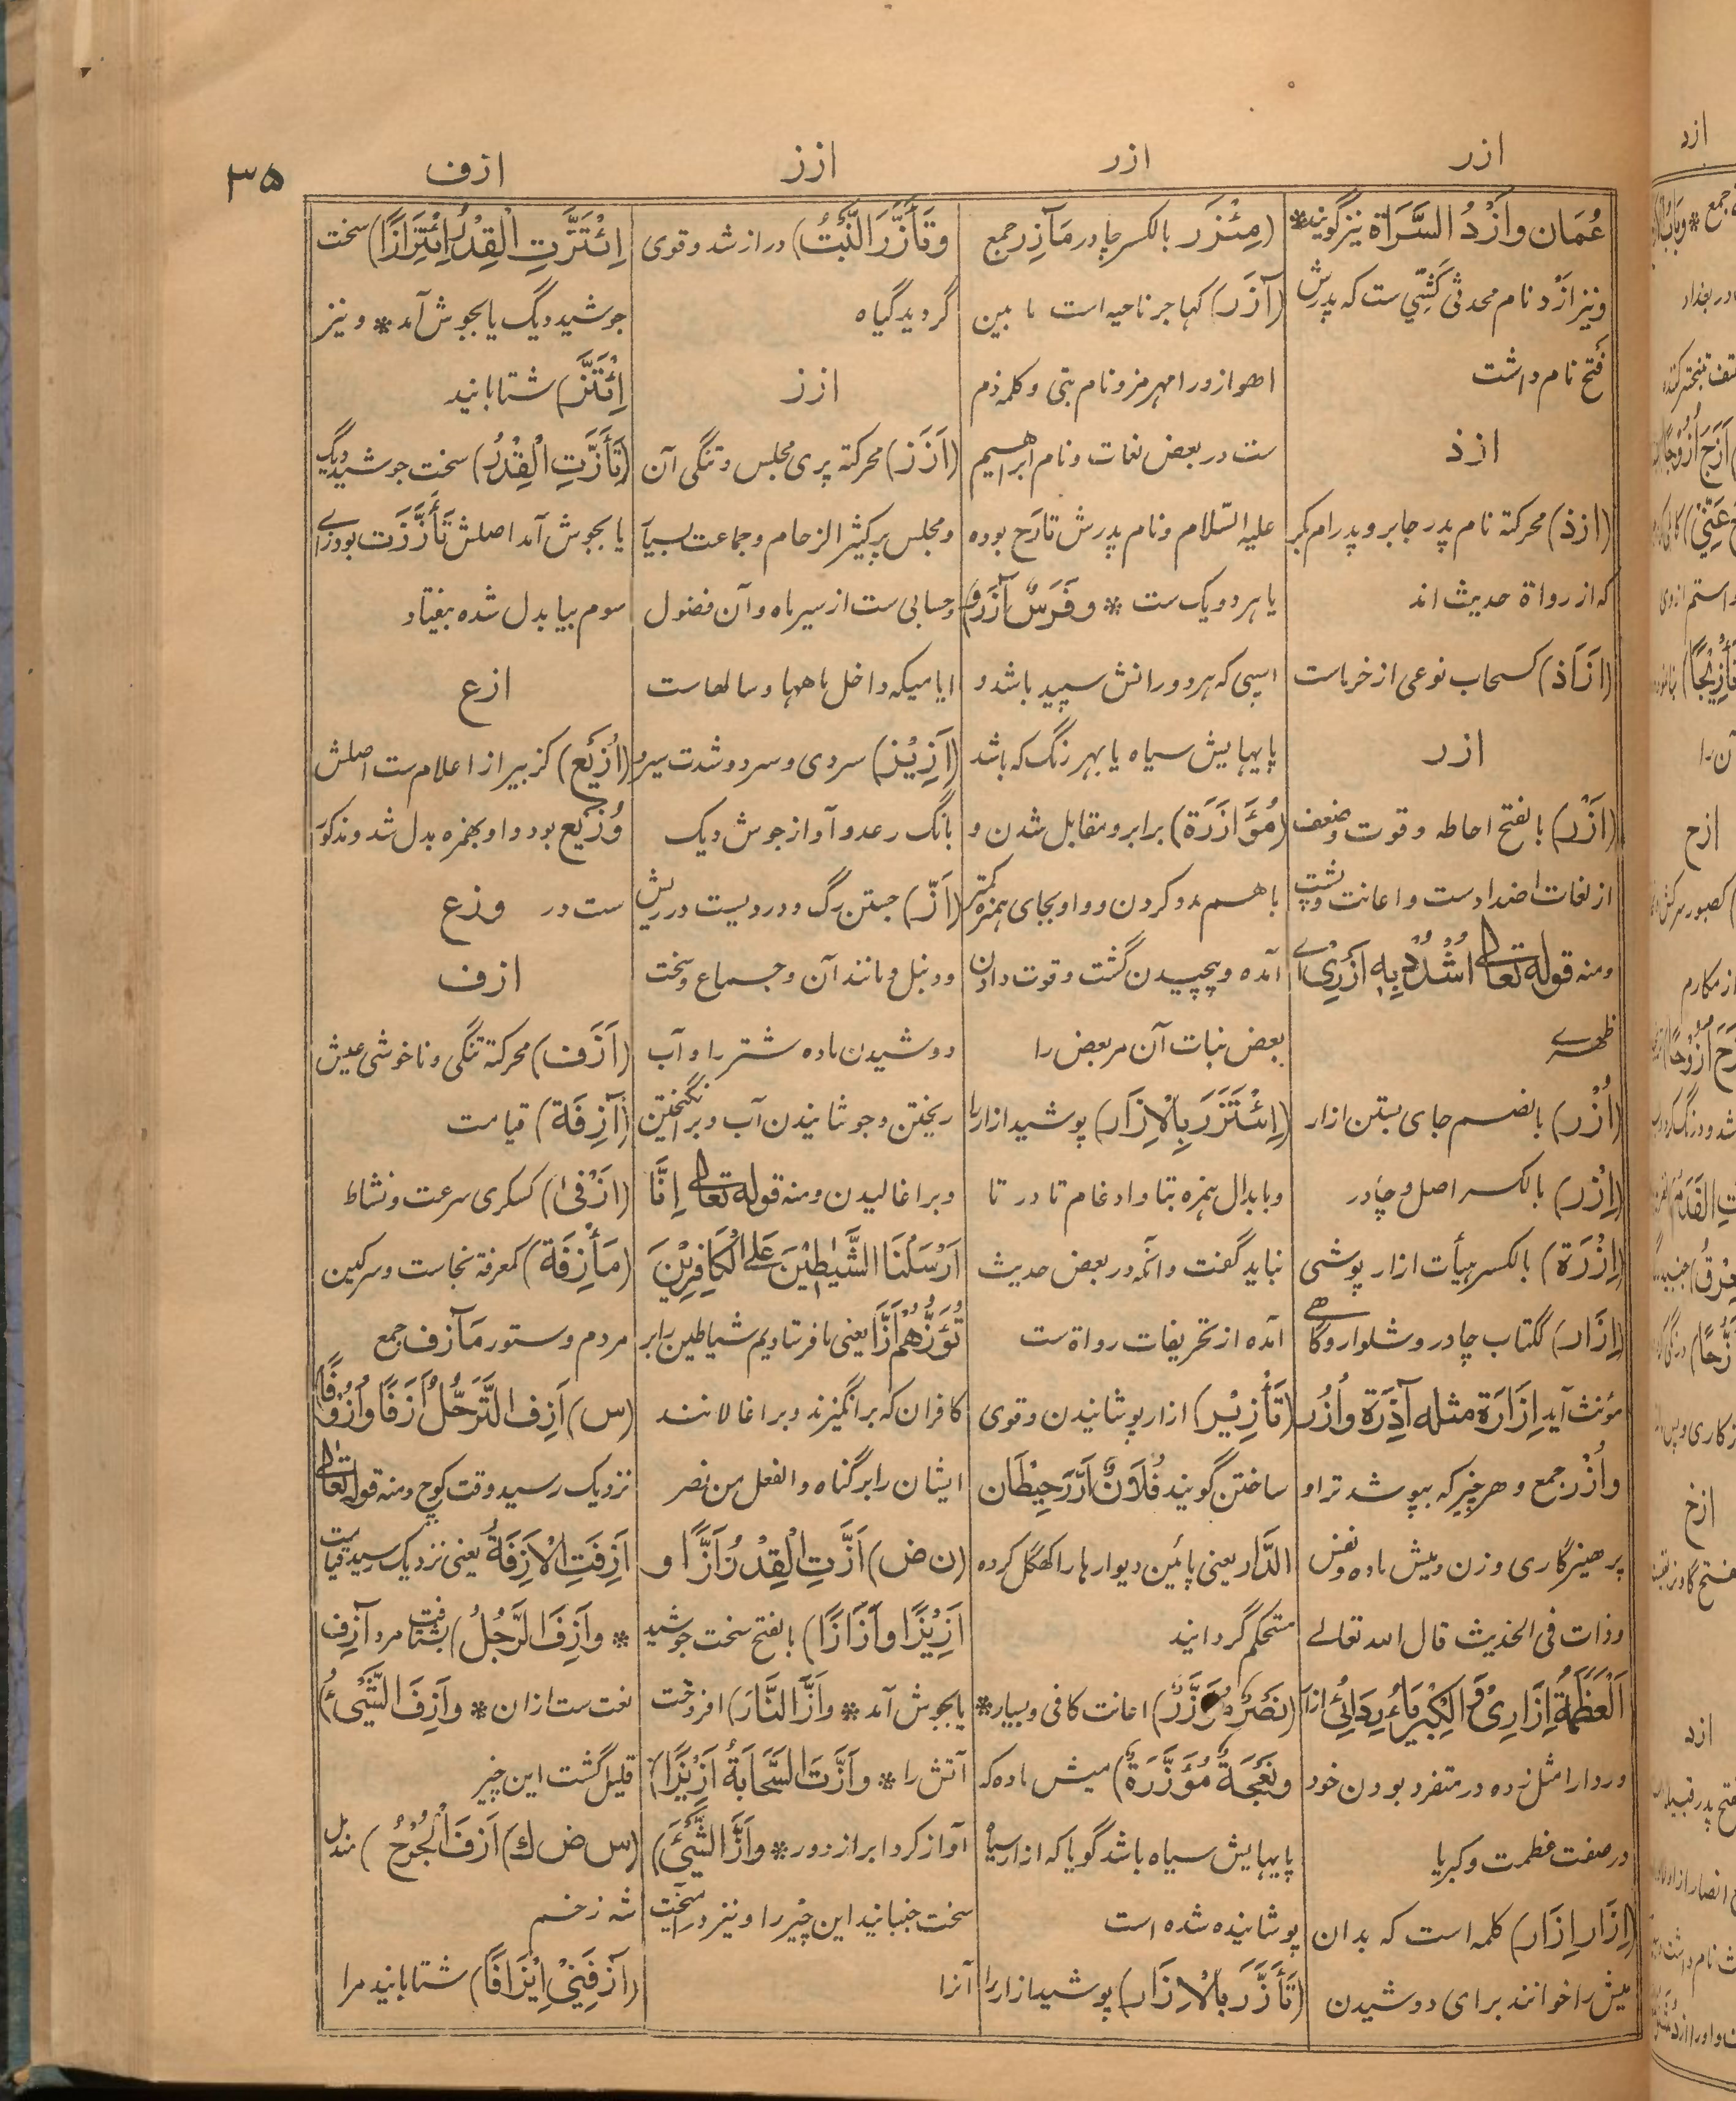 ازر
ازر
ازز
ازف
۳۵
عُمَان وَاَزْدُ السَّرَاة نیز گویند *
و نیز ازد نام محدثی کَشِّیّ ست که پدرش
فتح نام داشت
ازذ
(ازذ) محرکة نام پدر جابر و پدر ام بکر
که از رواة حدیث اند
(اَزَاذ) کسحاب نوعی از خرماست
ازر
(اَزْر) بالفتح احاطه و قوت و ضعف
از لغات اضدادست و اعانت و پشت
ومنه قوله تعالی اُشْدُدْ بِهٖ اَزْرِیْ اے
ظهرے
(اُزْر) بالضم جای بستن ازار
(اِزْر) بالکسر اصل و چادر
(اِزْرَة) بالکسر هیأت ازار پوشی
(اِزَار) ککتاب چادر و شلوار و گاهے
مؤنث آید اِزَارَة مثله آزِرَة وَاُزُر
وَاُزْر جمع و هر چیز که بپوشد ترا و
پرهیزگاری و زن و میش ماده و نفس
و ذات فی الحدیث قال الله تعالے
اَلْعَظَمَةُ اِزَارِیْ وَالْکِبْرِیَاءُ رِدَائِیْ ازار
و ردا را مثل زده در متفرد بودن خود
در صفت عظمت و کبریا
(اِزَار اِزَار) کلمه است که بدان
میش را خوانند برای دوشیدن
(مِئْزَر) بالکسر چادر مَآزِر جمع
(آزَر) کهاجر ناحیه است ما بین
اهواز و رامهرمز و نام بتی و کلمه ذم
ست در بعض لغات و نام ابراهیم
علیه السّلام و نام پدرش تارَح بوده
یا هر دو یک ست * وفَرَسٌ آزَرُ)
اسپی که هر دو رانش سپید باشد و
پایهایش سیاه یا بهر رنگ که باشد
(مُؤَازَرَة) برابر و مقابل شدن و
باهم مدد کردن و واو بجای همزه کمتر
آمده و پیچیدن گشت و قوت دادن
بعض نبات آن مر بعض را
(اِئْتَزَرَ بِالْاِزَار) پوشید ازار را
و بابدال همزه بتا و ادغام تا در تا
نباید گفت و انّه در بعض حدیث
آمده از تحریفات رواة ست
(تَأْزِیْر) ازار پوشانیدن و قوی
ساختن گویند فُلَانٌ اَزَّرَ حِیْطَان
الدَّار یعنی پائین دیوارها را کهگل کرده
مستحکم گردانید
(نَصْرٌ مُؤَزَّرٌ) اعانت کافی و بسیار *
ونَعْجَةٌ مُؤَزَّرَةٌ) میش ماده که
پایهایش سیاه باشد گویا که ازار سیاه
پوشانیده شده است
(تَأَزَّرَ بِالْاِزَار) پوشید ازار را
وتَأَزَّرَ النَّبْتُ) دراز شد و قوی
گردید گیاه
ازز
(اَزَز) محرکة پری مجلس و تنگی آن
و مجلس پر کثیر الزحام و جماعت بسیار
و حسابی ست از سیر ماه و آن فضول
ایامیکه داخل ماهها و سالهاست
(اَزِیْز) سردی و سرد و شدت سیر و
بانگ رعد و آواز جوش دیک
(اَزّ) جستن رگ و دردیست در ریش
و دنبل و مانند آن و جماع و سخت
دوشیدن ماده شتر را و آب
ریختن و جوشانیدن آب و برانگیختن
و براغالیدن ومنه قوله تعالی اِنَّا
اَرْسَلْنَا الشَّیٰطِیْنَ عَلَی الْکَافِرِیْنَ
تَؤُزُّهُمْ اَزًّا یعنی ما فرستادیم شیاطین را بر
کافران که برانگیزند و براغالانند
ایشان را بر گناه و الفعل من نصر
(ن ض) اَزَّتِ الْقِدْرُ اَزًّا و
اَزِیْزًا وَاَزَازًا) بالفتح سخت جوشید
یا بجوش آمد * واَزَّ النَّارَ) افروخت
آتش را * واَزَّتِ السَّحَابَةُ اَزِیْزًا)
آواز کرد ابر از دور * واَزَّ الشَّیْئَ)
سخت جنبانید این چیز را و نیز در آمیخت
آنرا
اِئْتَزَّتِ الْقِدْرُ اِئْتِزَازًا) سخت
جوشید دیگ یا بجوش آمد * و نیز
اِئْتَزَّ) شتابانید
(تَأَزَّتِ الْقِدْرُ) سخت جوشید دیگ
یا بجوش آمد اصلش تَأَزَّزَت بود زای
سوم بیا بدل شده بیفتاد
ازع
(اُزَیْع) کزبیر از اعلام ست اصلش
وُزَیْع بود واو بهمزه بدل شد و مذکور
ست در وزع
ازف
(اَزَف) محرکة تنگی و ناخوشی عیش
(آزِفَة) قیامت
(اَزْفٰی) کسکری سرعت و نشاط
(مَأْزِفَة) کمعرفة نجاست و سرگین
مردم و ستور مَآزِف جمع
(س) اَزِفَ التَّرَحُّلُ اَزَفًا وَاُزُوْفًا)
نزدیک رسید وقت کوچ ومنه قوله تعالی
اَزِفَتِ الْاٰزِفَةُ یعنی نزدیک رسید قیامت
* واَزِفَ الرَّجُلُ) بشتافت مرد آزِف
نعت ست ازان * واَزِفَ الشَّیْئُ)
قلیل گشت این چیز
(س ض ك) اَزَفَ الْجُرْحُ) مندمل
شد زخم
(آزَفَنِیْ اِیْزَافًا) شتابانید مرا